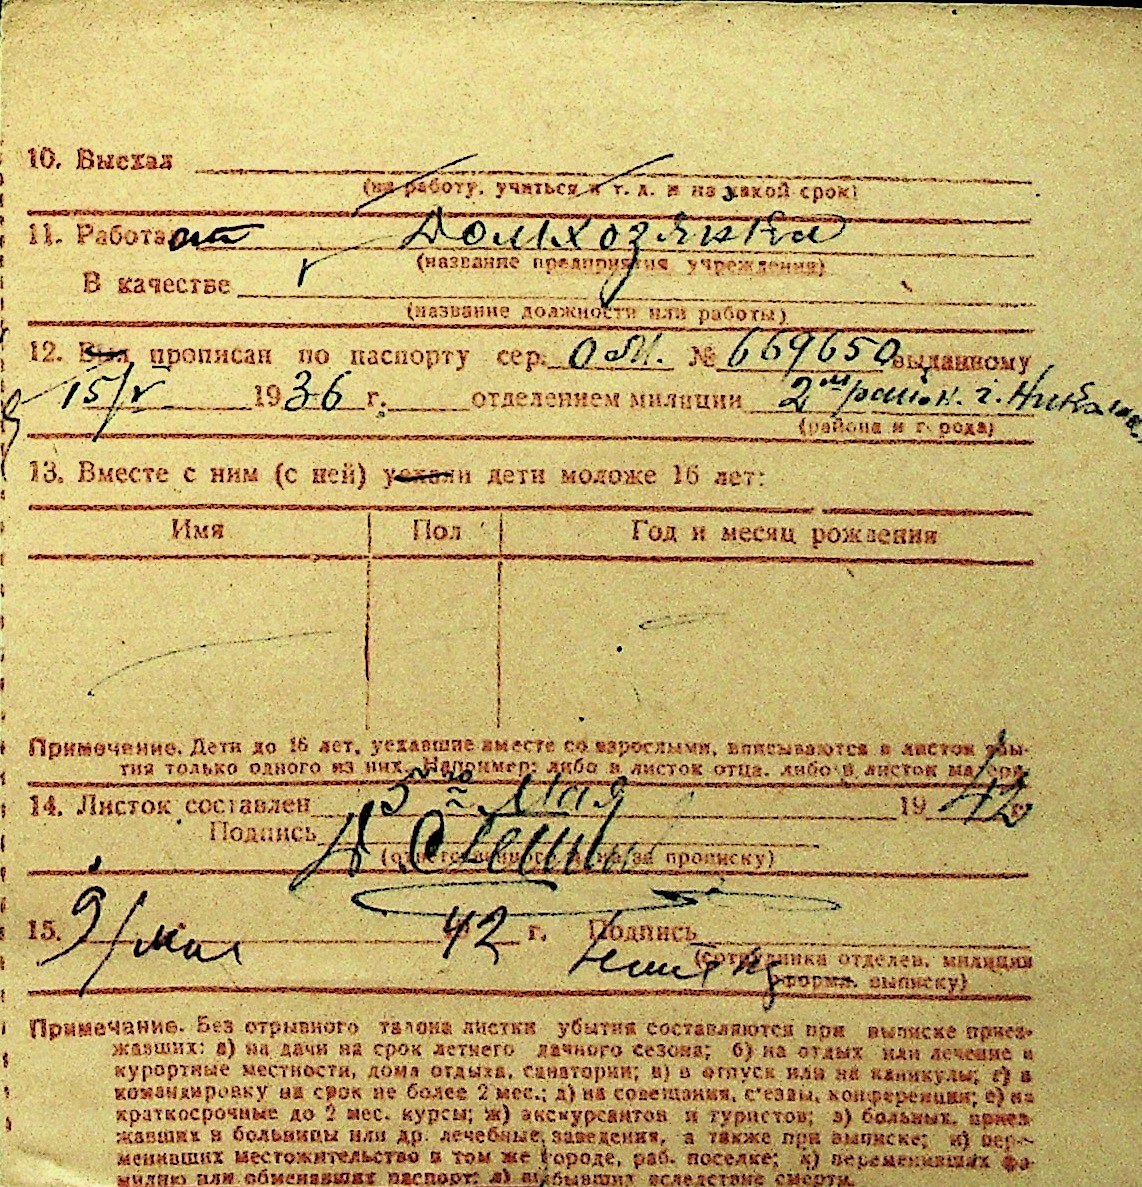 10. Выехал
(на работу, учиться и т. д. и на какой срок)
11. Работает Домхозяйка
(название предприятия, учреждения)
В качестве
(название должности или работы)
12. Был прописан по паспорту сер. О.М. № 669650 выданному
15/V 1936 г. отделением милиции 2м район. г.
(района и города)
13. Вместе с ним (с ней) уехали дети моложе 16 лет:
Имя Пол Год и месяц рождения
Примечание. Дети до 16 лет, уехавшие вместе со взрослыми, вписываются в листок убы-
тия только одного из них. Например: либо в листок отца, либо в листок матери.
14. Листок составлен 5го Мая 1942 г.
Подпись
(ответственного лица за прописку)
15. 9/мая 42 г. Подпись
(сотрудника отделен. милиции
оформл. выписку)
Примечание. Без отрывного талона листки убытия составляются при выписке приез-
жавших: а) на дачи на срок летнего дачного сезона; б) на отдых или лечение в
курортные местности, дома отдыха, санатории; в) в отпуск или на каникулы; г) в
командировку на срок не более 2 мес.; д) на совещания, с'езды, конференции; е) на
краткосрочные до 2 мес. курсы; ж) экскурсантов и туристов; з) больных, приез-
жавших в больницы или др. лечебные заведения, а также при выписке; и) пере-
менивших местожительство в том же городе, раб. поселке; к) переменивших фа-
милию или обменявших паспорт; л) выбывших вследствие смерти.